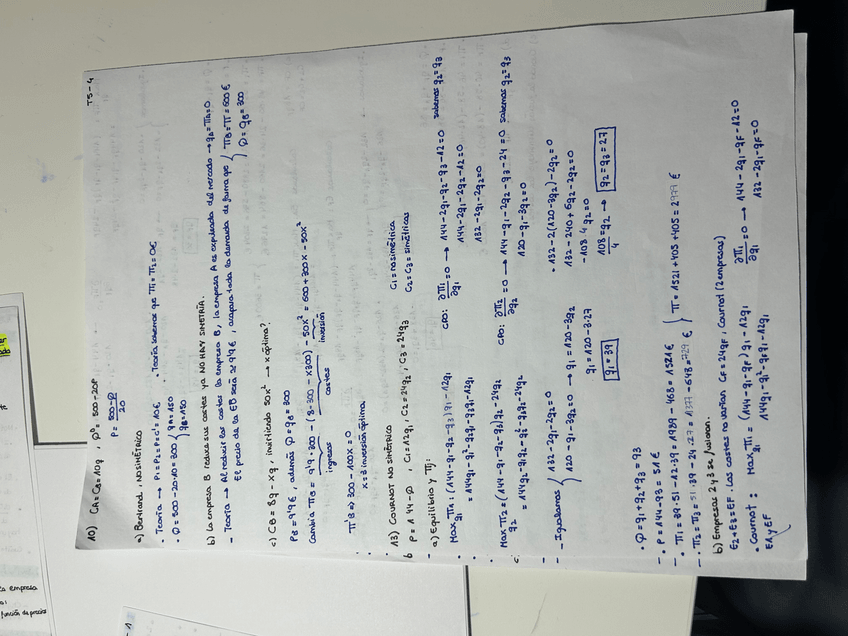 T5-4
10) CA=CB=10q , Q^D = 500-20P
P = 500-Q / 20
a) Bertrand, NO SIMÉTRICO
· Teoría → P1=P2=P=C'=10€ . Teoría sabemos que π1=π2=0€
· Q = 500-20·10=300 { qA=150
qB=150
b) La empresa B reduce sus costes ya NO HAY SIMETRÍA.
- Teoría → Al reducir los costes la empresa B, la empresa A es expulsada del mercado → qA=πA=0
El precio de la EB será 9'99€, acapara toda la demanda de forma que { πB=π=600€
Q=qB=300
c) CB = 8q - xq, invirtiendo 50x² → x óptima?
PB = 9'9€, además Q=qB=300
Cambia πB = 9'9·300 - (8·300 - x300) - 50x² = 600+300x - 50x²
ingresos costes inversión
π'B ⇒ 300 - 100x = 0
x=3 inversión óptima
13) COURNOT NO SIMÉTRICO
P = 144-Q , C1=12q1, C2=24q2, C3=24q3
C1= no simétrica
C2=C3= simétricas
a) Equilibrio y πj:
Max π1: (144-q1-q2-q3)q1-12q1
q1
= 144q1-q1²-q2q1-q3q1-12q1
CPO: ∂π1/∂q1 = 0 → 144-2q1-q2-q3-12=0 sabemos q2=q3
144-2q1-2q2-12=0
132-2q1-2q2=0
Max π2 = (144-q1-q2-q3)q2-24q2
q2
= 144q2-q1q2-q2²-q3q2-24q2
CPO: ∂π2/∂q2 = 0 → 144-q1-2q2-q3-24=0 sabemos q2=q3
120-q1-3q2=0
- Igualamos { 132-2q1-2q2=0
120-q1-3q2=0 → q1=120-3q2
q1=120-3·27
q1=39
· 132-2(120-3q2)-2q2=0
132-240+6q2-2q2=0
-108 4q2=0
108/4=q2 → q2=q3=27
· Q=q1+q2+q3=93
- · P=144-93=51€
- · π1=39·51-12·39=1989-468=1521€
- · π2=π3=51·39-24·27=1377-648=729€ } π=1521+405+405=2979€
b) Empresas 2 y 3 se fusionan.
E2+E3=EF. Los costes no varían CF=24qF, Cournot (2 empresas)
· Cournot: Max π1 = (144-q1-qF)q1-12q1
E1 y EF q1
144q1-q1²-qFq1-12q1
∂π1/∂q1 = 0 → 144-2q1-qF-12=0
132-2q1-qF=0
a empresa
función de precios